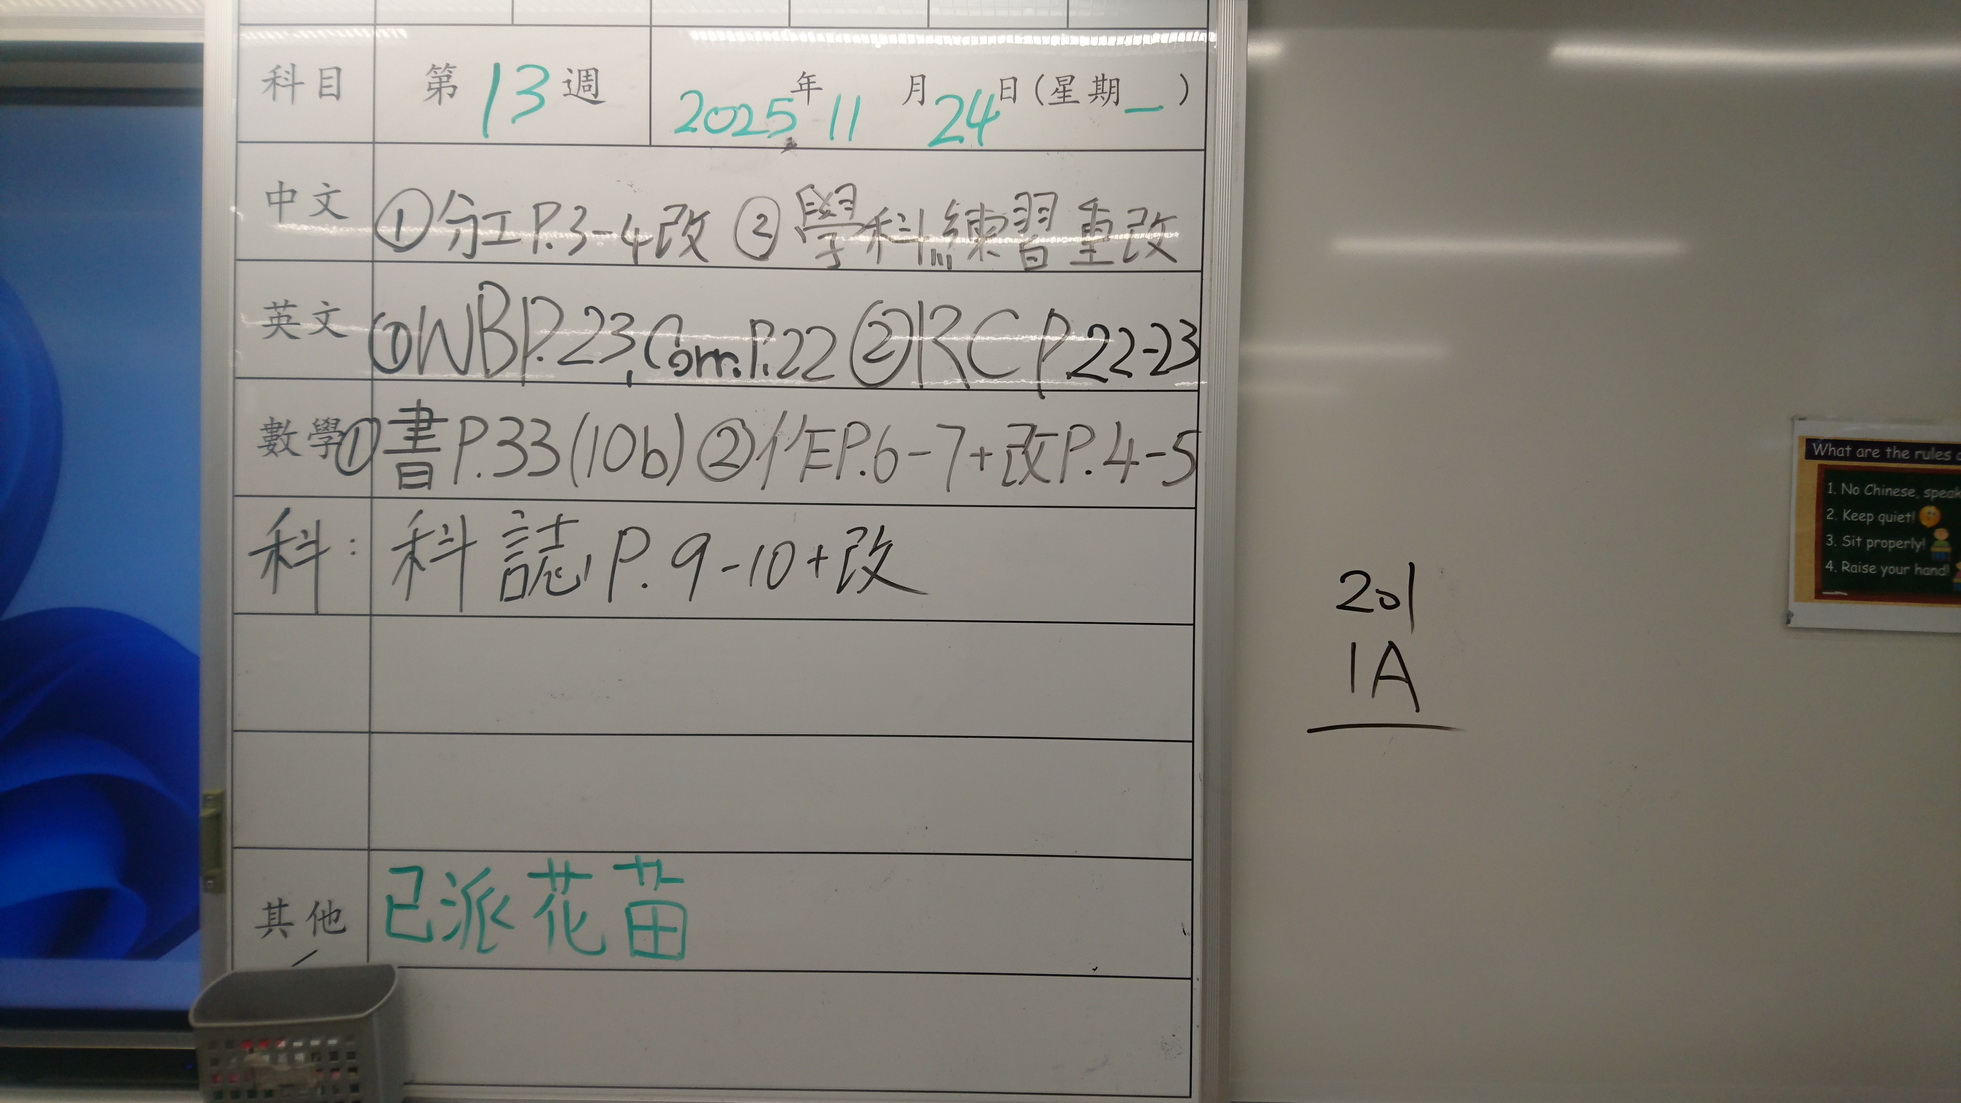 科目 第13週 2025年11月24日(星期一)
中文 ①分工P.3-4改 ②學科練習重改
英文 ①WBP.23, Com.P.22 ②RC P.22-23
數學 ①書P.33(10b) ②作P.6-7+改P.4-5
科: 科誌P.9-10+改
其他 已派花苗
201
1A
What are the rules
1. No Chinese, speak
2. Keep quiet!
3. Sit properly!
4. Raise your hand!